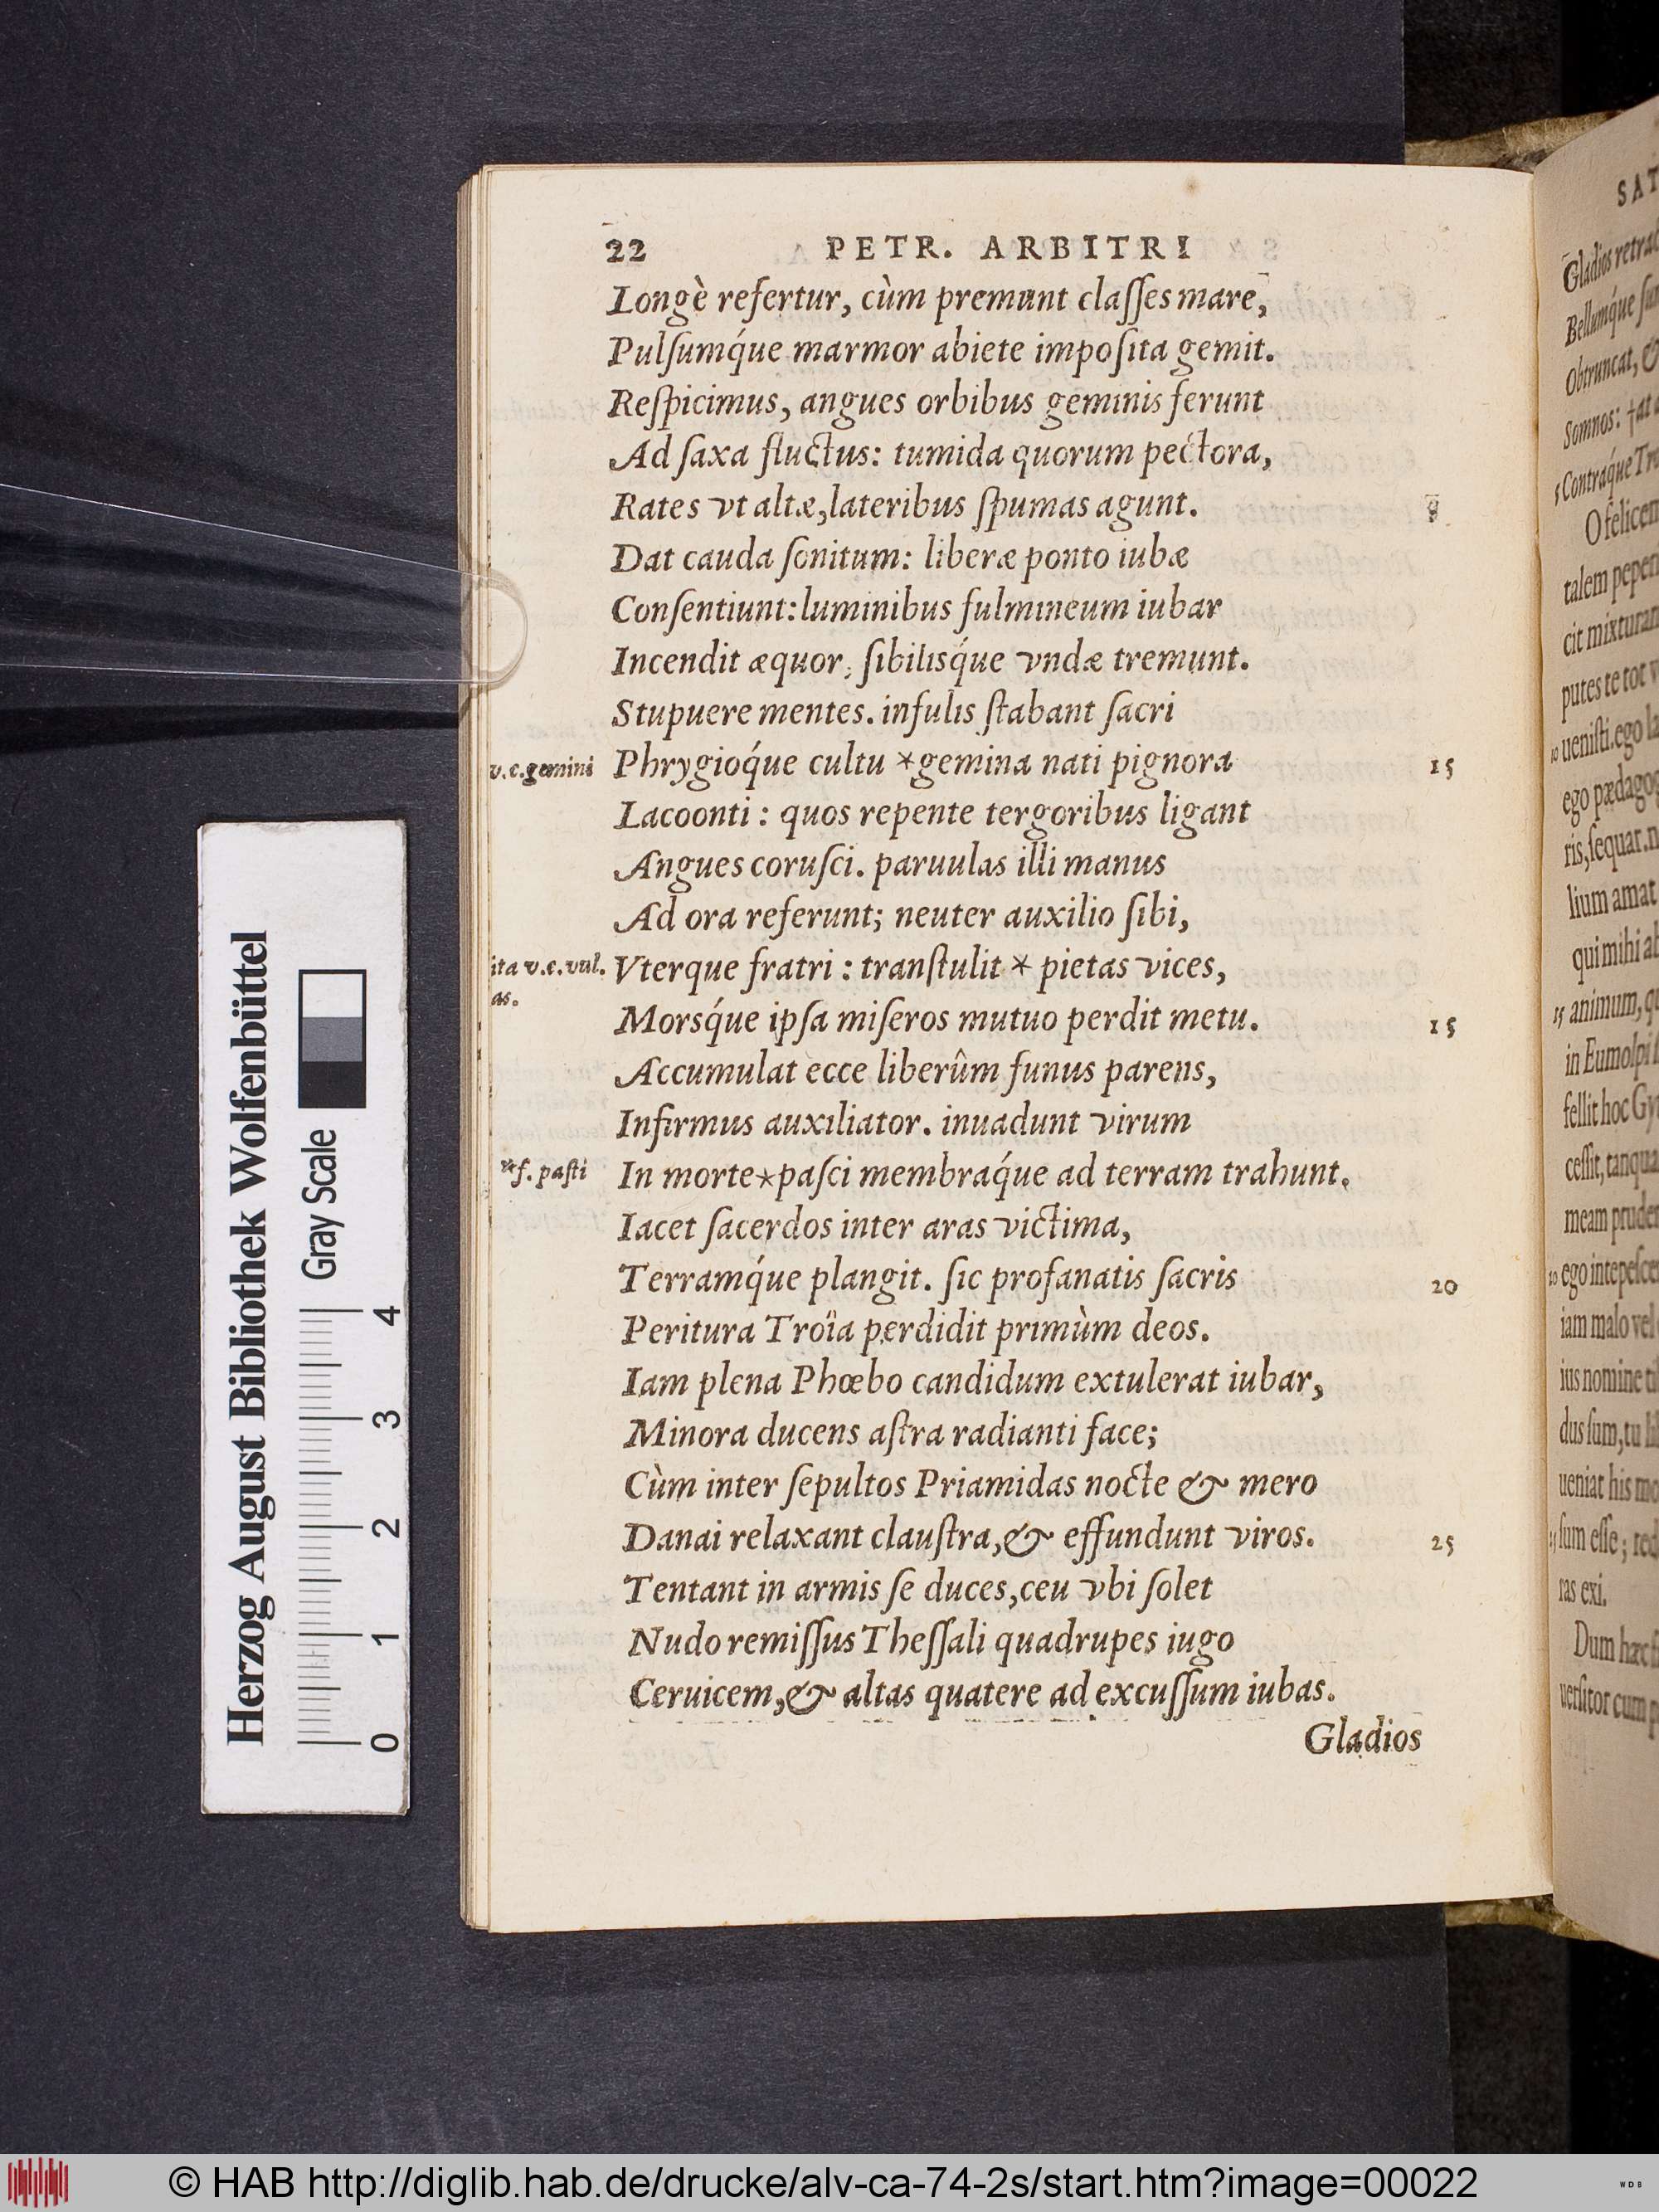 22 PETR. ARBITRI
Longè refertur, cùm premunt claſſes mare,
Pulſumq́ue marmor abiete impoſita gemit.
Reſpicimus, angues orbibus geminis ferunt
Ad ſaxa fluctus: tumida quorum pectora,
Rates vt altæ, lateribus ſpumas agunt.
Dat cauda ſonitum: liberæ ponto iubæ
Conſentiunt: luminibus fulmineum iubar
Incendit æquor, ſibilisq́ue vndæ tremunt.
Stupuere mentes. infulis ſtabant ſacri
v.c.gemini Phrygioq́ue cultu *gemina nati pignora 15
Lacoonti : quos repente tergoribus ligant
Angues coruſci. paruulas illi manus
Ad ora referunt; neuter auxilio ſibi,
ita v.c.vul. Vterque fratri : tranſtulit * pietas vices,
as.
Morsq́ue ipſa miſeros mutuo perdit metu. 15
Accumulat ecce liberûm funus parens,
Infirmus auxiliator. inuadunt virum
*f. paſti In morte*paſci membraq́ue ad terram trahunt.
Iacet ſacerdos inter aras victima,
Terramq́ue plangit. ſic profanatis ſacris 20
Peritura Troïa perdidit primùm deos.
Iam plena Phœbo candidum extulerat iubar,
Minora ducens aſtra radianti face;
Cùm inter ſepultos Priamidas nocte & mero
Danai relaxant clauſtra, & effundunt viros. 25
Tentant in armis ſe duces, ceu vbi ſolet
Nudo remiſſus Theſſali quadrupes iugo
Ceruicem, & altas quatere ad excuſſum iubas.
Gladios
SAT
Gladios
Bellumq́ue
Obtruncat, &
Somnos: †at
Contraq́ue
O felicem
talem
cit
putes te tot
10 ueniſti. ego
ego
ris, ſequar.
lium amat
qui mihi
15 animum,
in Eumolpi
fellit hoc
ceſſit,
meam
20 ego
iam malo vel
ius nomine
dus ſum, tu
ueniat his
ſum eſſe;
ras exi.
Dum hæc
uerſitor cum
Herzog August Bibliothek Wolfenbüttel
Gray Scale
0 1 2 3 4
© HAB http://diglib.hab.de/drucke/alv-ca-74-2s/start.htm?image=00022
WDB